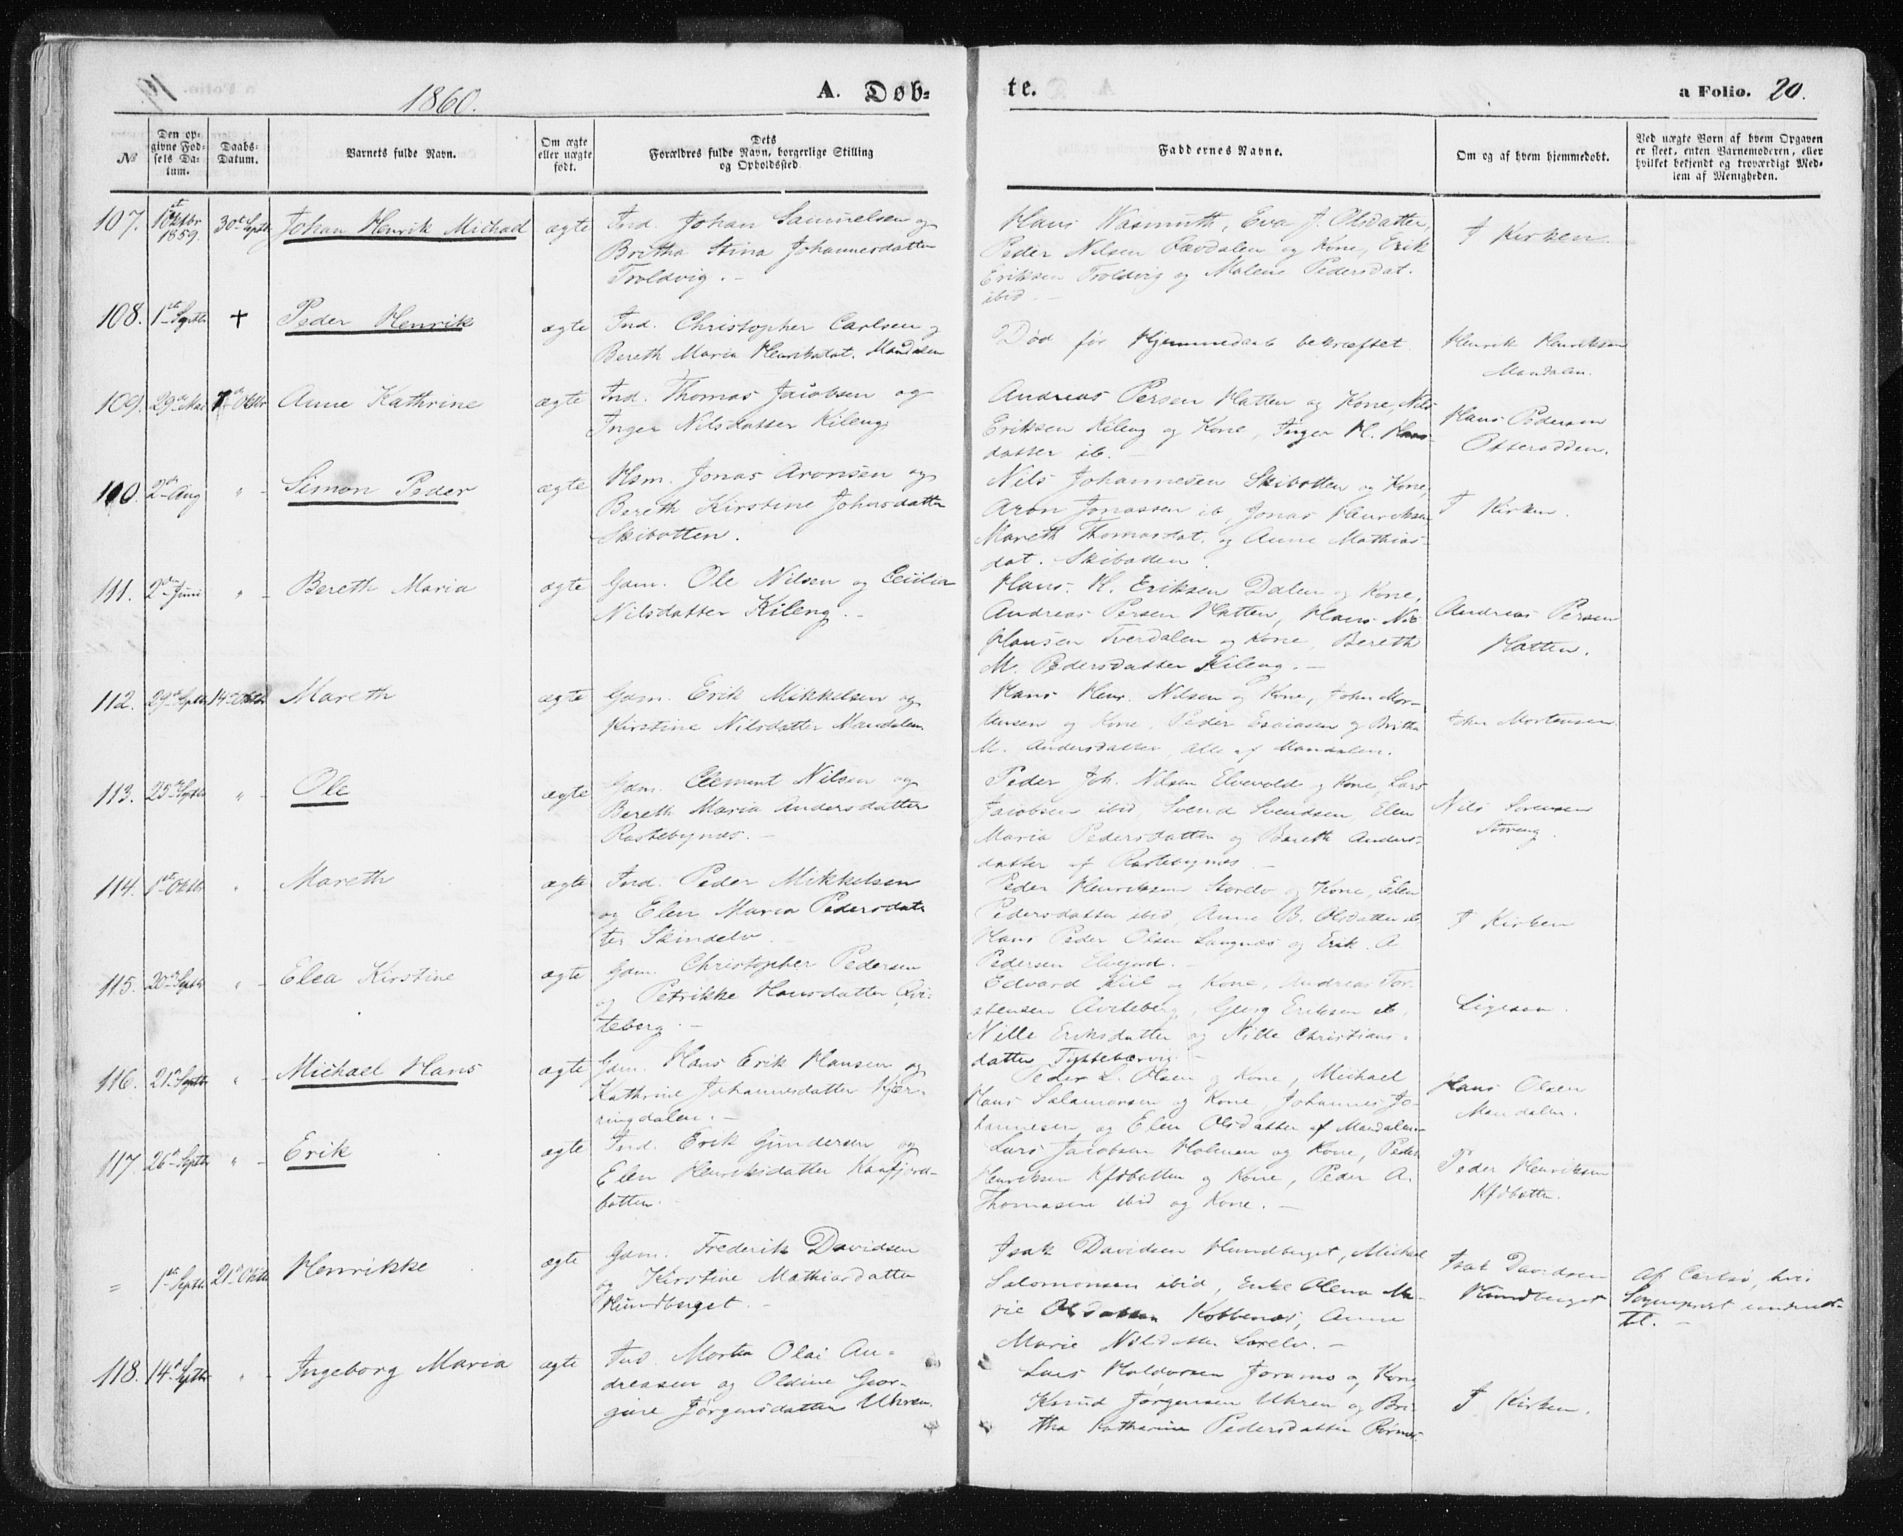 1860.
A. Døb-
te.
a Folio. 20.
№
Den op-
givne Fød-
sels Da-
tum.
Daabs-
Datum.
Barnets fulde Navn.
Om ægte
eller uægte
født.
Dets
Forældres fulde Navn, borgerlige Stilling
og Opholdssted.
Faddernes Navne.
Om og af hvem hjemmedøbt.
Ved uægte Born af hvem Opgaven
er skeet, enten Barnemoderen, eller
hvilket bekjendt og troværdigt Med-
lem af Menigheden.
107. 1st Oktbr 1859. 30te Septbr Johan Henrik Michael ægte
Ind. Johan Samuelsen og
Britha Stina Johannesdatter
Troldvig.
Hans Wasmuth, Eva J. Olsdatter,
Peder Nilsen Løvdalen og Kone, Erik
Eriksen Troldvig og Malene Pedersdat.
ibid
I Kirken.
108. 1ste Septbr + Peder Henrik ægte
Ind. Christopher Carlsen og
Bereth Maria Henriksdat. Mandalen
Død før Hjemmedaab bekræftet.
Henrik Henriksen
Mandalen.
109. 29de Mai 7de Oktbr Anne Kathrine ægte
Ind. Thomas Jacobsen og
Inger Nilsdatter Kileng
Andreas Persen Hatten og Kone, Nils
Eriksen Kileng og Kone, Inger H. Hans-
datter ib.
Hans Pedersen
Otterodden.
110. 2den Aug " Simon Peder ægte
Hsm. Jonas Aronsen og
Bereth Kirstine Johnsdatter
Skibotten.
Nils Johannesen Skibotten og Kone,
Aron Jonassen ib, Jonas Henriksen
Mareth Thomasdat. og Anne Mathias-
dat. Skibotten.
I Kirken.
111. 2den Juni " Bereth Maria ægte
Gdm. Ole Nilsen og Cecilia
Nilsdatter Kileng.
Hans H. Eriksen Dalen og Kone,
Andreas Persen Hatten, Hans Nils
Hansen Tverdalen og Kone, Bereth
M. Pedersdatter Kileng.
Andreas Persen
Hatten.
112. 29de Septbr 14de Oktbr Mareth ægte
Gdm. Erik Mikkelsen og
Kirstine Nilsdatter Mandalen
Hans Henr. Nilsen og Kone, John Mor-
tensen og Kone, Peder Esaiasen og Britha
M. Andersdatter, alle af Mandalen.
John Mortensen
113. 25de Septbr " Ole ægte
Gdm. Clement Nilsen og
Bereth Maria Andersdatter
Rastebynæs.
Peder Joh. Nilsen Elvevold og Kone, Lars
Jacobsen ibid, Svend Svendsen, Elen
Maria Pedersdatter og Bereth Anders-
datter af Rastebynæs
Nils Sørensen
Storeng.
114. 1ste Oktbr " Mareth ægte
Ind. Peder Mikkelsen
og Elen Maria Pedersdat-
ter Skindelv
Peder Henriksen Storelv og Kone, Elen
Pedersdatter ibid, Anne B. Olsdatter ib
Hans Peder Olsen Langnæs og Erik A
Pedersen
I Kirken
115. 20de Septbr " Elea Kirstine ægte
Gdm. Christopher Pedersen
og Petrikke Hansdatter Qvi-
teberg.
Edvard Kiil og Kone, Andreas Tor-
stensen Qviteberg, Georg Eriksen ib,
Nille Eriksdatter og Nille Christians-
datter
Ligesaa.
116. 21de Septbr " Michael Hans ægte
Gdm. Hans Erik Hansen og
Kathrine Johannesdatter Kjær-
ringdalen.
Peder L. Olsen og Kone, Michael
Hans Salamonsen og Kone, Johannes Jo-
hannesen, og Elen Olsdatter af Mandalen
Hans Olsen
Mandalen.
117. 26de Septbr " Erik ægte
Ind. Erik Gundersen og
Elen Henriksdatter Kaafjord-
botten.
Lars Jacobsen Holmen og Kone, Peder
Henriksen Kfdbotten og Kone, Peder A.
Thomasen ibid og Kone.
Peder Henriksen
Kfdbotten.
= 1ste Septbr 21de Oktbr Henrikke ægte
Gdm. Frederik Davidsen
og Kirstine Mathiasdatter
Hundberget.
Isak Davidsen Hundberget, Michael
Salomonsen ibid, Enke Olena Ma-
rie Olsdatter Kobbenæs, Anne
Marie Nilsdatter Sørelv.
Isak Davidsen
Hundberget
Af Carlsø, hvis
Sogneprest underret-
tet.
118. 14de Septbr " Ingeborg Maria ægte
Ind. Morten Olai An-
dreasen og Oldine Geor-
gine Jørgensdatter Uhren.
Lars Haldorsen Joramo og Kone,
Knud Jørgensen Uhren og Bri-
tha Katharine Pedersdatter
I Kirken.